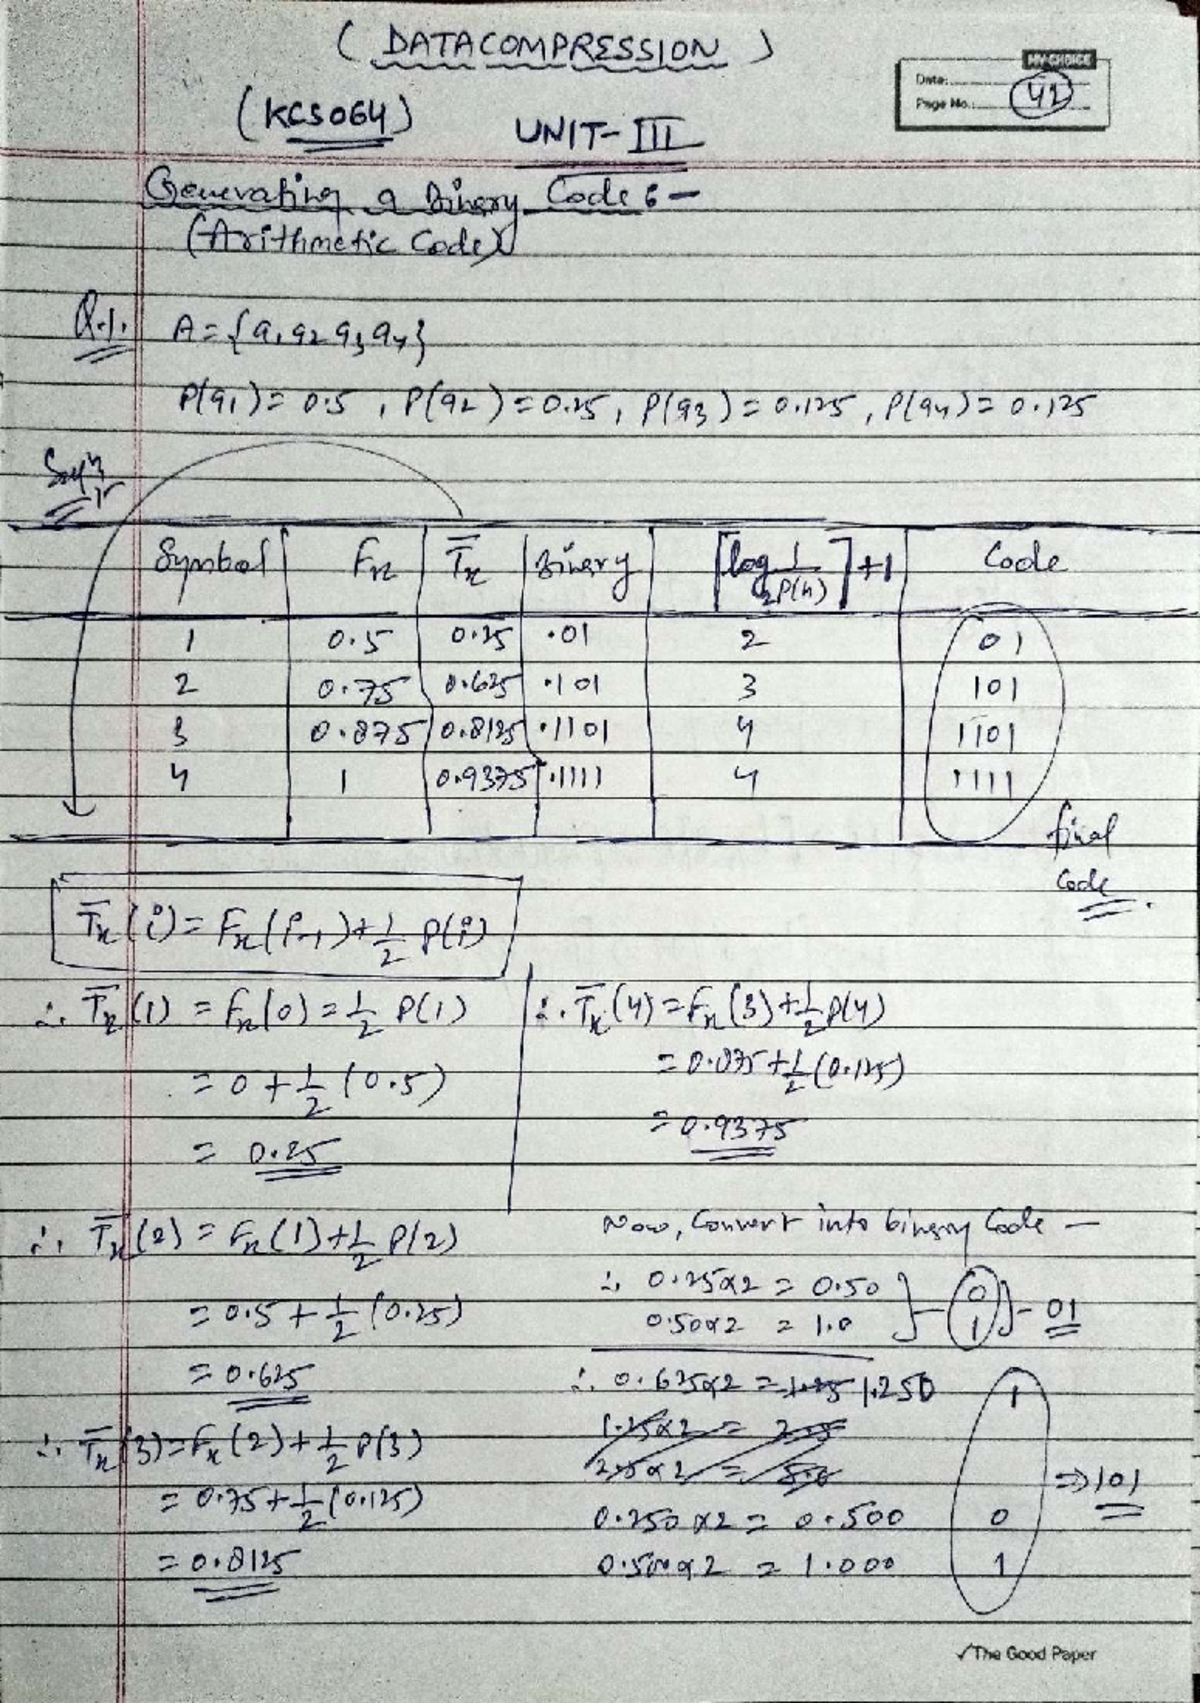 ( DATACOMPRESSION )
MY CHOICE
Date:
Page No.: 42
(KCS064) UNIT-III
Generating a Binary Code :-
(Arithmetic Code)
Q.1. A = {a1 a2 a3 a4}
P(a1) = 0.5 , P(a2) = 0.25, P(a3) = 0.125, P(a4) = 0.125
Symbol Fx T̅x Binary ⌈log2 1/P(x)⌉+1 Code
1 0.5 0.25 .01 2 01
2 0.75 0.625 .101 3 101
3 0.875 0.8125 .1101 4 1101
4 1 0.9375 .1111 4 1111
final
Code
T̅x(i) = Fx(i-1)+1/2 P(i)
∴ T̅x(1) = Fx(0) = 1/2 P(1)
= 0 + 1/2 (0.5)
= 0.25
∴ T̅x(2) = Fx(1)+1/2 P(2)
= 0.5 + 1/2 (0.25)
= 0.625
∴ T̅x(3) = Fx(2)+1/2 P(3)
= 0.75+1/2(0.125)
= 0.8125
∴ T̅x(4) = Fx(3)+1/2 P(4)
= 0.875+1/2(0.125)
= 0.9375
Now, Convert into binary Code —
∴ 0.25x2 = 0.50 0
0.50x2 = 1.0 1 - 01
∴ 0.625x2 = 1.25 1.250 1
1.25x2 = 2.5
2.5x2 = 5.0
⇒ 101
0.250 x2 = 0.500 0
0.500x2 = 1.000 1
✓The Good Paper